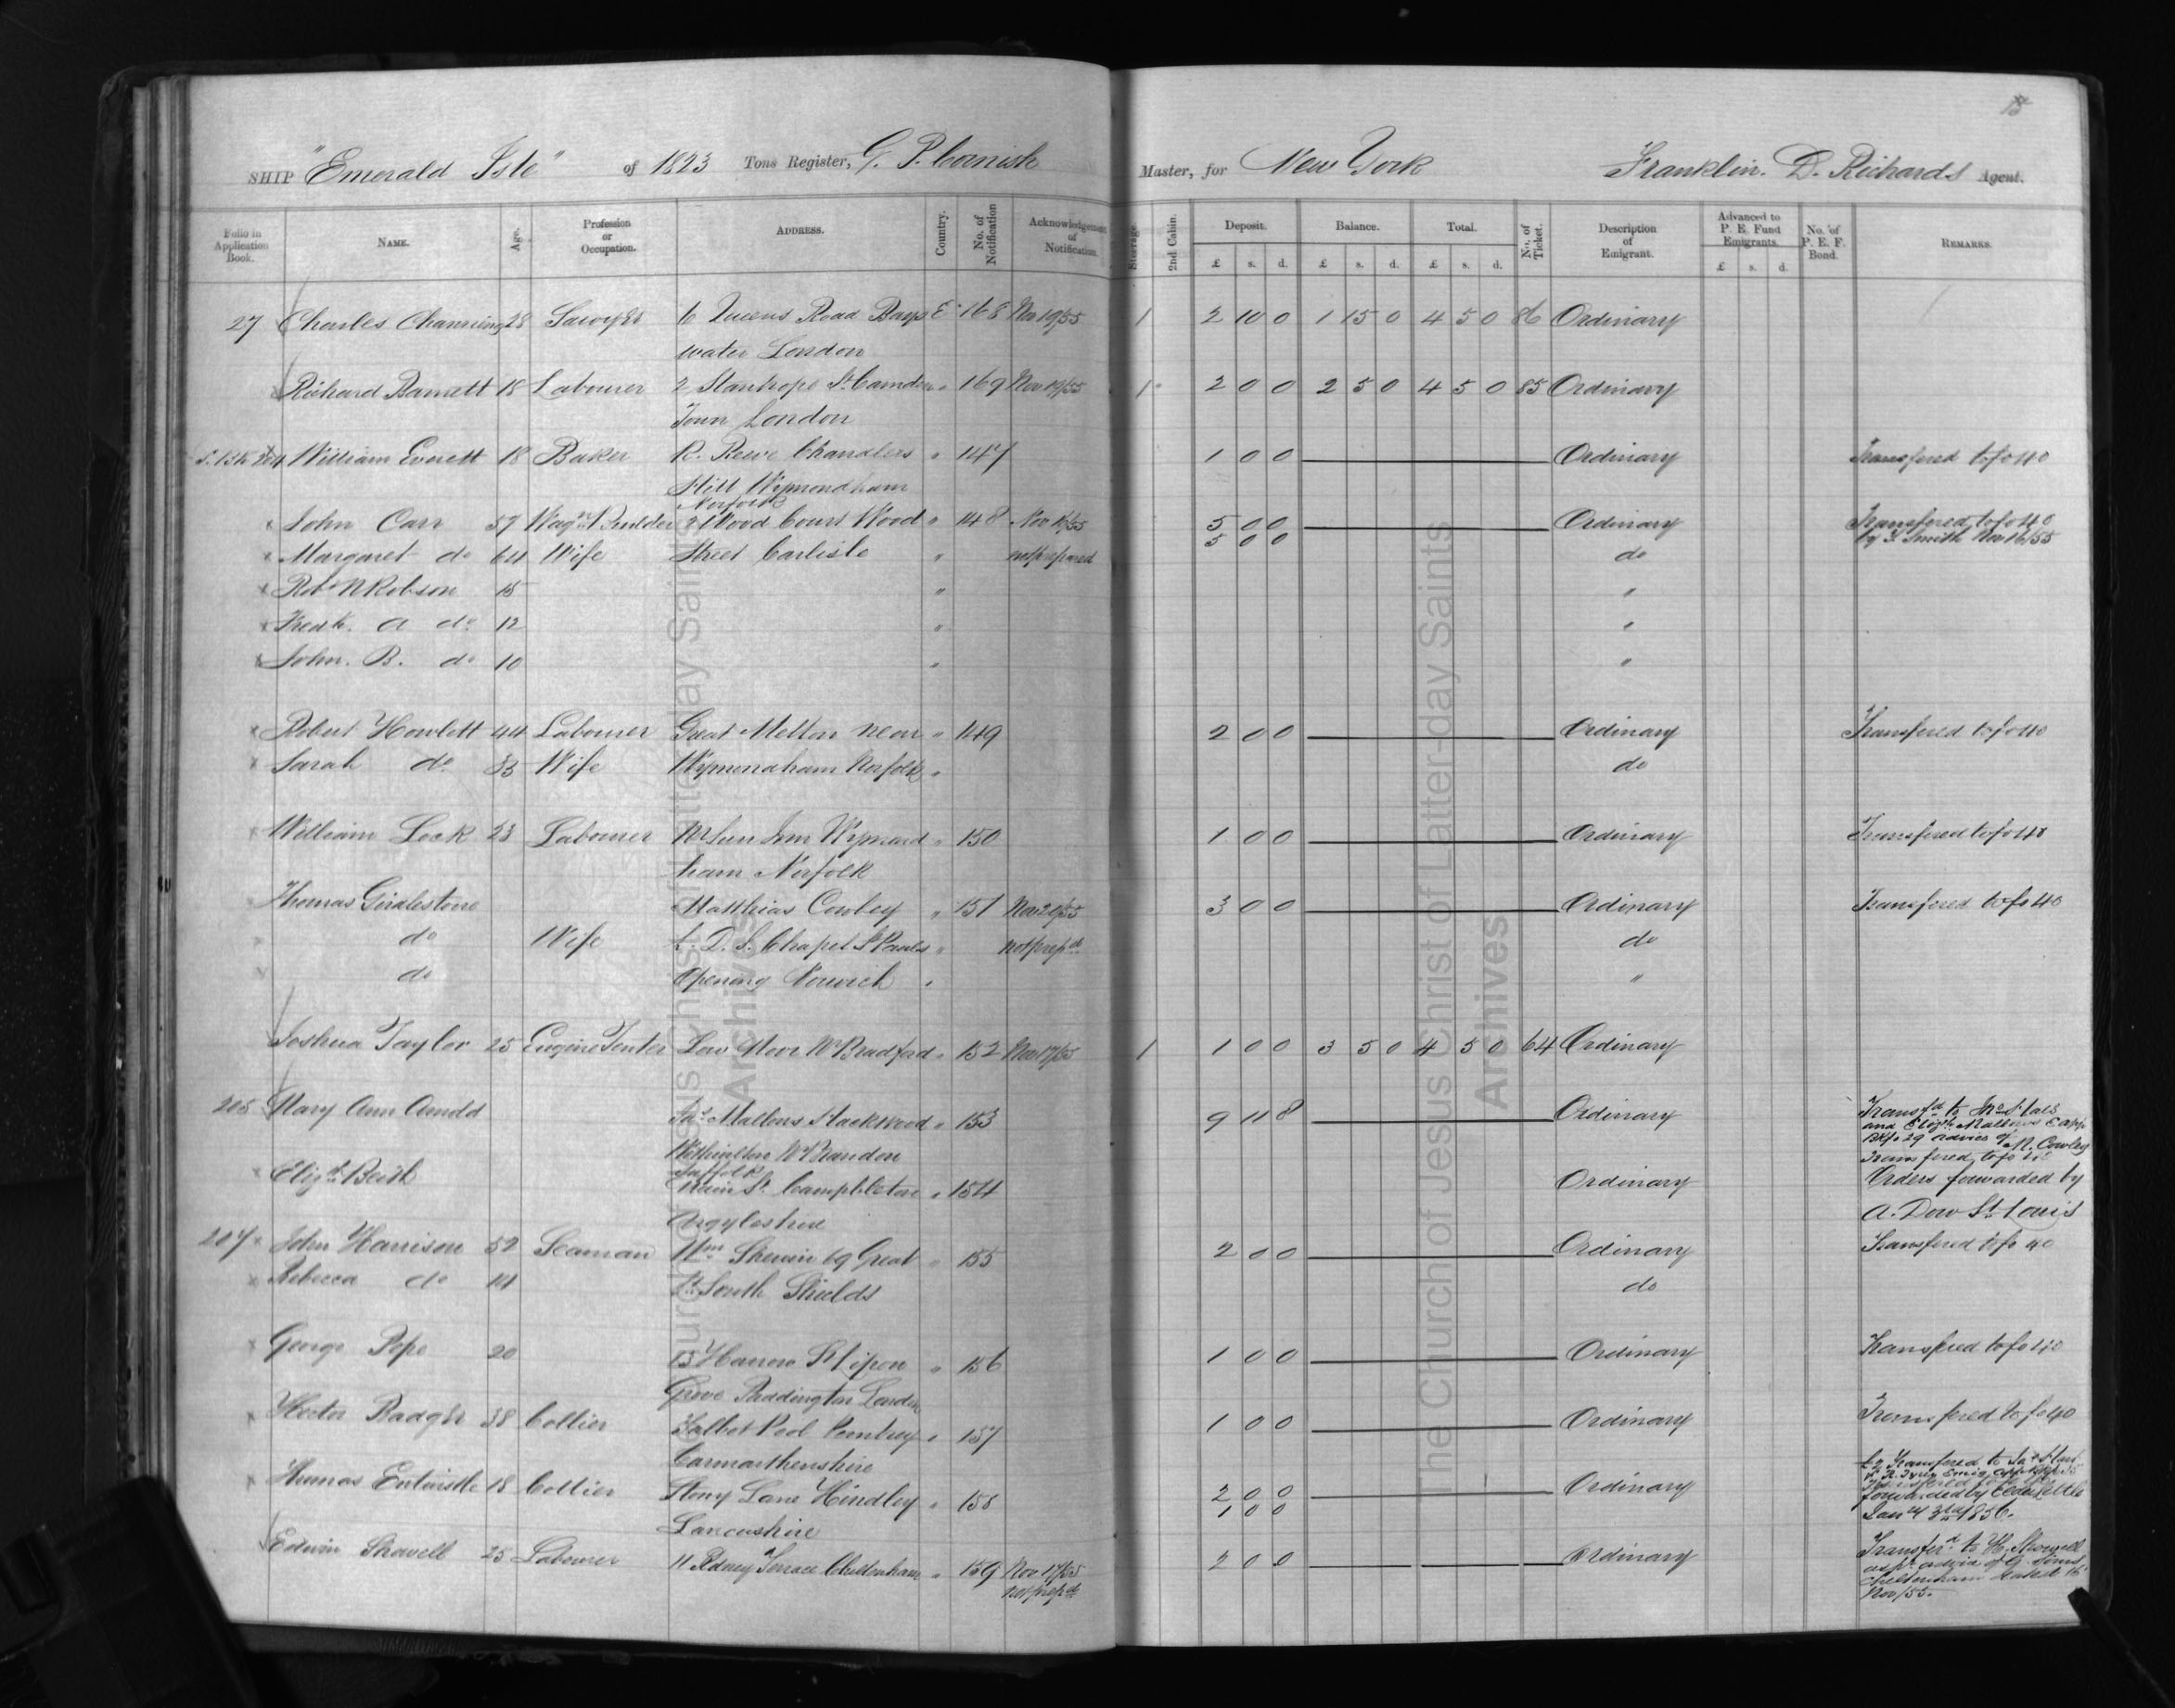 15
SHIP "Emerald Isle" of 1823 Tons Register, G. P. Cornish Master, for New York Franklin. D. Richards Agent.
Folio in Application Book. NAME. Age. Profession or Occupation. ADDRESS. Country. No. of Notification Acknowledgement of Notification. Steerage. 2nd Cabin. Deposit. Balance. Total. No. of Ticket. Description of Emigrant. Advanced to P. E. Fund Emigrants. No. of P. E. F. Bond. REMARKS.
£ s. d. £ s. d. £ s. d. £ s. d.
27 Charles Channing 28 Sawyer 6 Queens Road Bays E 168 Nov 19/55 1 2 10 0 1 15 0 4 5 0 86 Ordinary
water London
Richard Barnett 18 Labourer 2 Stanhope St. Camden " 169 Nov 19/55 1 2 0 0 2 5 0 4 5 0 85 Ordinary
Town London
204 William Everett 18 Baker R. Reeve Chandlers " 147 1 0 0 Ordinary Transfered to fo 40
Hill Wymondham
Norfolk
x John Carr 57 Wagn Builder 2 Wood Court Wood " 148 Nov 16/55 5 0 0 Ordinary Transfered to fo 40
5 0 0 by T. Smith Nov 16/55
x Margaret do 64 Wife Street Carlisle " not prepared do
x Robt N Robson 15 " "
x Fredk. A do 12 " "
x John. B. do 10 " "
x Robert Howlett 44 Labourer Great Melton near " 149 2 0 0 Ordinary Transfered to fo 40
x Sarah do 33 Wife Wymondham Norfolk " do
x William Lock 23 Labourer Sun Inn Wymond " 150 1 0 0 Ordinary Transfered to fo 40
ham Norfolk
Thomas Girdlestone Matthias Cowley " 151 Nov 20/55 3 0 0 Ordinary Transfered to fo 40
do Wife L. D. S. Chapel St Pauls " not prepd do
do Opening Norwich " "
Joshua Taylor 25 Engine Tenter Low Moor Nr Bradford " 152 Nov 17/55 1 1 0 0 3 5 0 4 5 0 64 Ordinary
205 Mary Ann Arnold Jas Mallows " 153 9 11 8 Ordinary Transfd to
and Elizth Mallows
advice of M. Cowley
Nr Brandon
Suffolk Transfered to fo 40
x Elizth Beith Main St. Campbleton " 154 Ordinary Orders forwarded by
Argyleshire A. Dow St. Louis
207 x John Harrison 52 Seaman Wm Sherwin 69 Great " 155 2 0 0 Ordinary Transfered to fo 40
x Rebecca do 14 St South Shields do
x George Pope 20 15 Harrow St Lipon " 156 1 0 0 Ordinary Transfered to fo 40
Grove Paddington London
x Hector Badger 38 Collier Talbot Pool Pembrey " 157 1 0 0 Ordinary Transfered to fo 40
Carmarthenshire
x Thomas Entwistle 18 Collier Stony Lane Hindley " 158 2 0 0 Ordinary £2 Transfered to
1 0 0 forwarded by Elder
Lancashire Jany 3rd 1856.
Edwin Shavell 25 Labourer 11 Rodney Terrace Cheltenham " 159 Nov 17/55 2 0 0 Ordinary Transferd to H. Showell
not prepd as pr advice of G. Sims
Cheltenham dated 16
Nov/55.
The Church of Jesus Christ of Latter-day Saints
Archives
The Church of Jesus Christ of Latter-day Saints
Archives